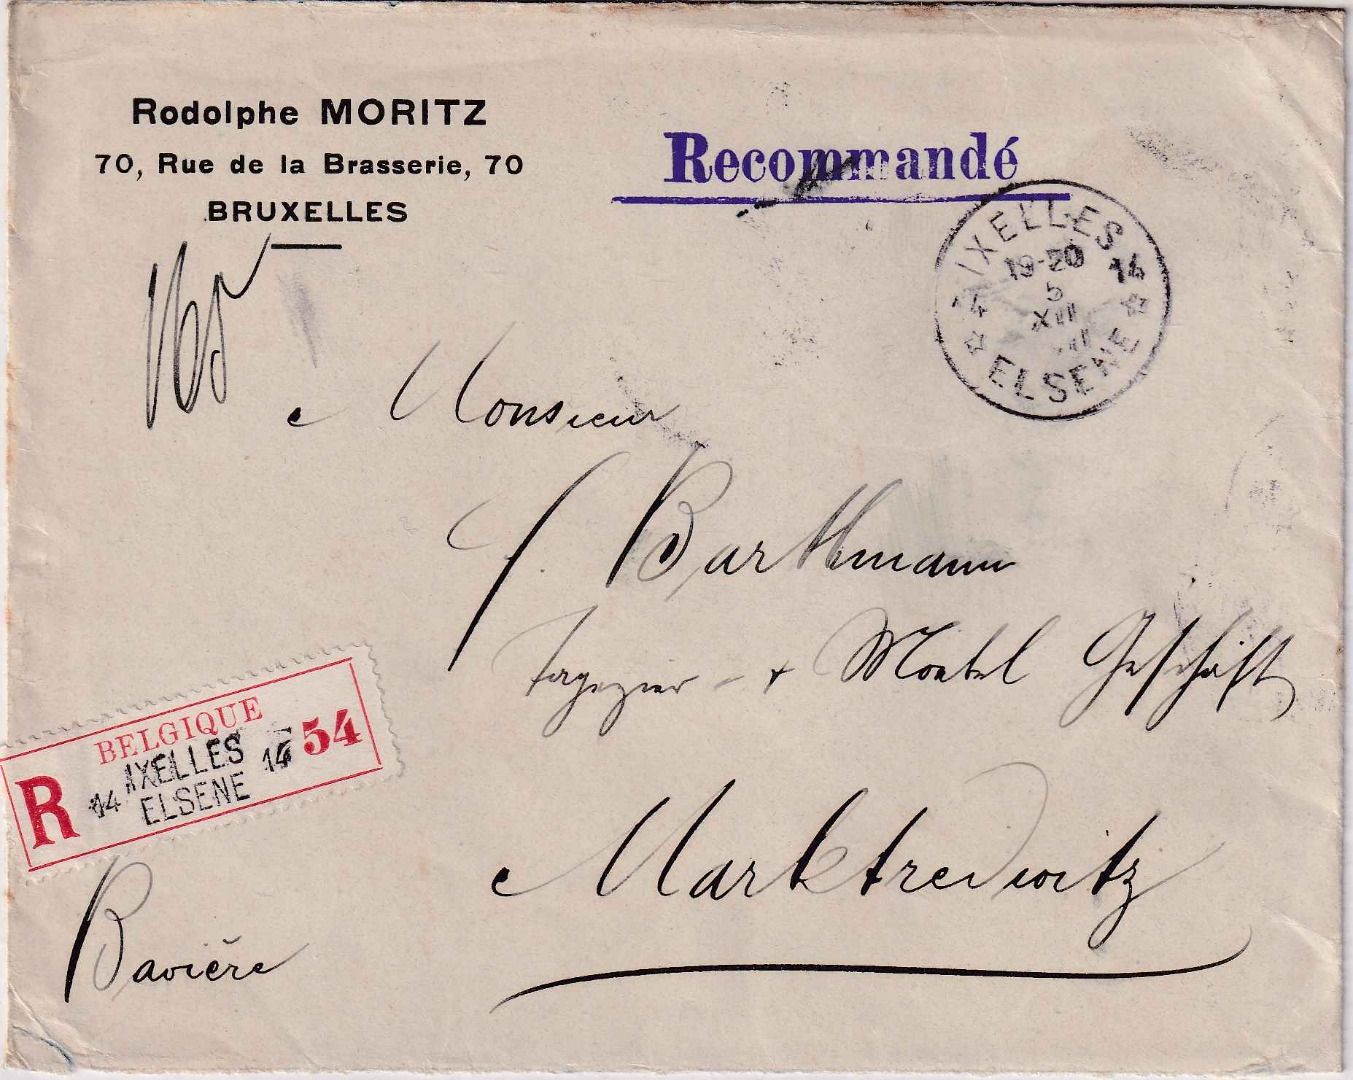 Rodolphe MORITZ
70, Rue de la Brasserie, 70
BRUXELLES
Recommandé
IXELLES
19-20
14 14
5
XII
ELSENE
Monsieur
Barthmann
Tapezier - + Moebel Geschäft
Marktredwitz
BELGIQUE
R 14 IXELLES 14 54
ELSENE
Bavière